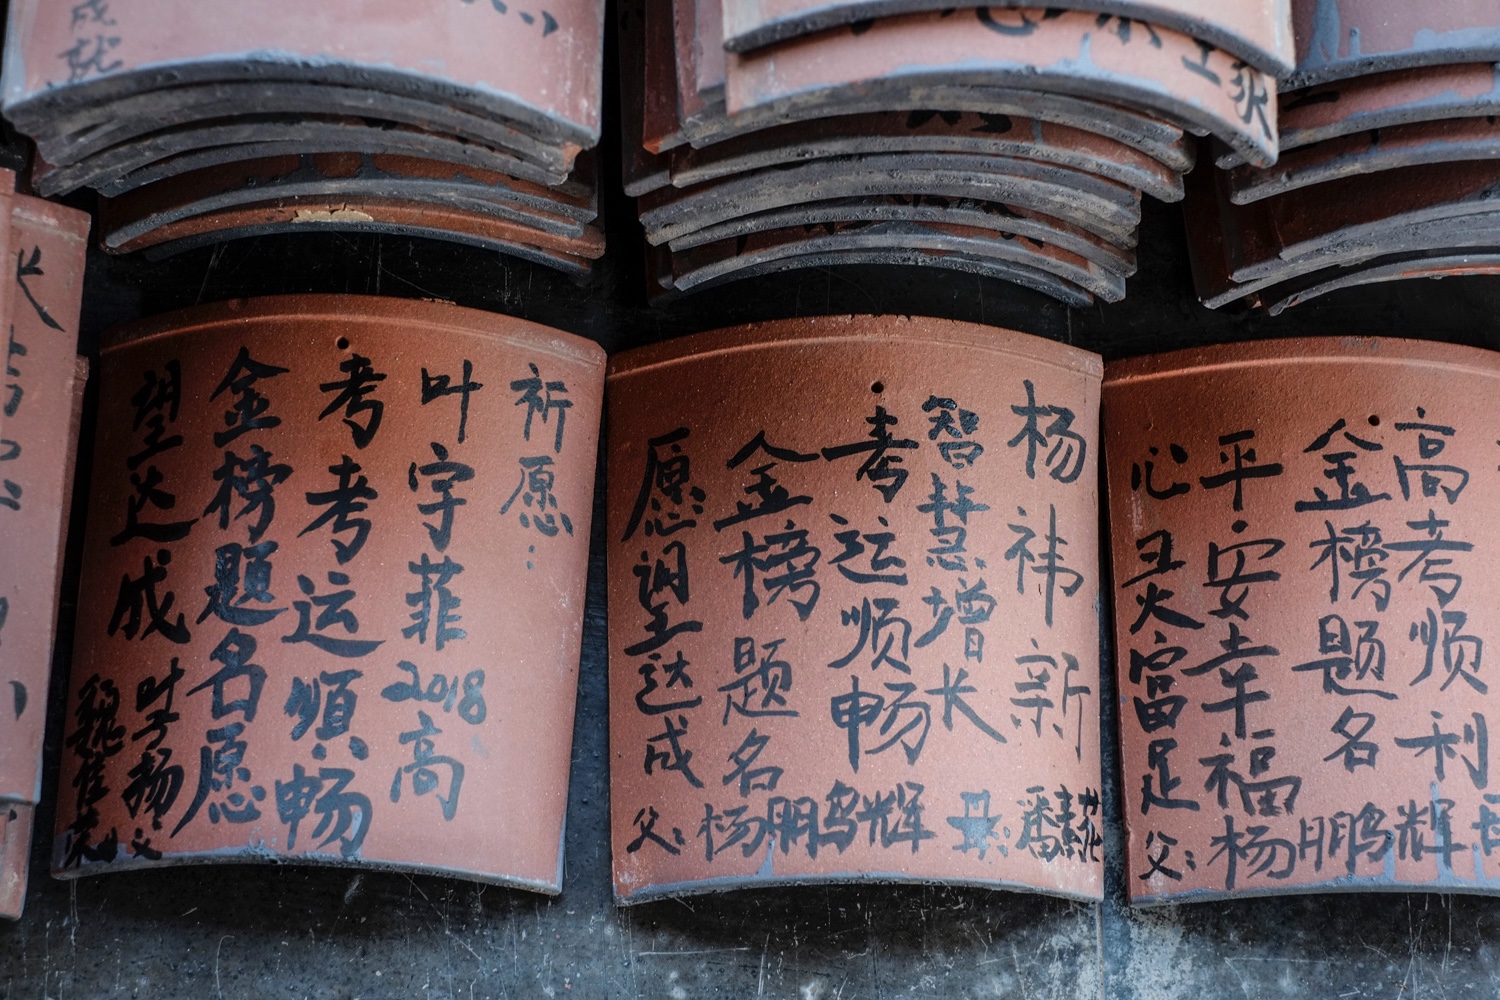 祈愿：
叶宇菲2018高
考考运顺畅
金榜题名愿
望达成
叶子扬 父
魏佳
杨祎新
智慧增长
考运顺畅
金榜题名
愿望达成
父：杨鹏辉 母：番
高考顺利
金榜题名
平安幸福
心 富足
父：杨鹏辉 母
成就